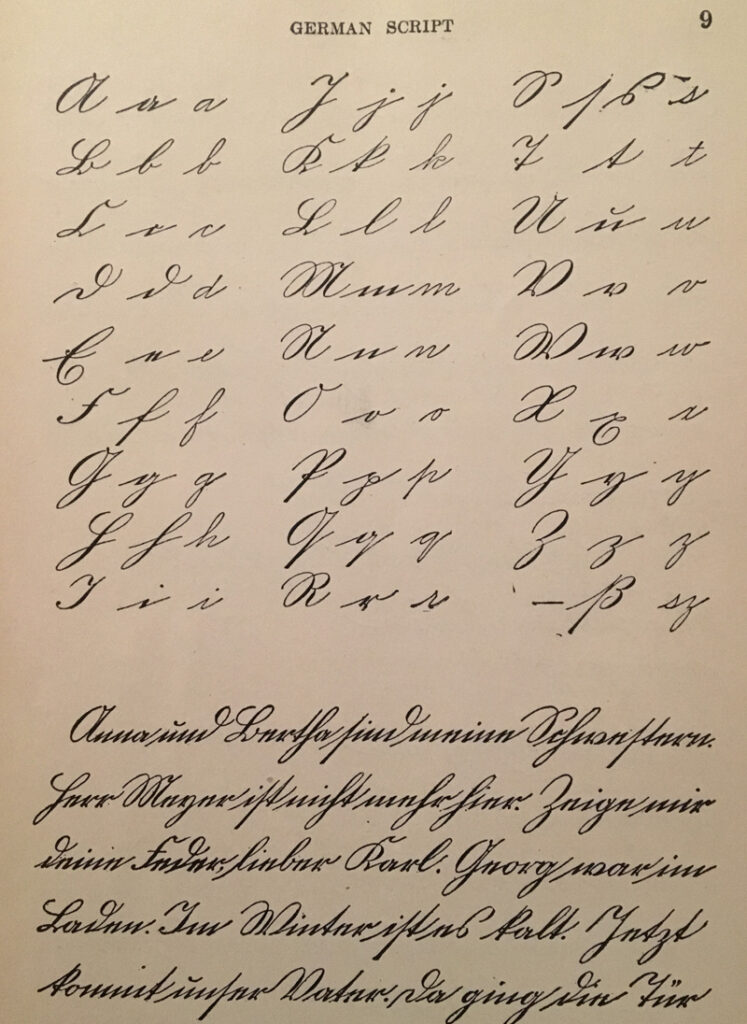 GERMAN SCRIPT 9
A a a J j j S ſ s s
B b b K k k T t t
C c c L l l U u u
D d d M m m V v v
E e e N n n W w w
F f f O o o X x x
G g g P p p Y y y
H h h Q q q Z z z
I i i R r r – ß sz
Anna und Bertha sind meine Schwestern.
Herr Meyer ist nicht mehr hier. Zeige mir
deine Feder, lieber Karl. Georg war im
Laden. Im Winter ist es kalt. Jetzt
kommt unser Vater. Da ging die Tür